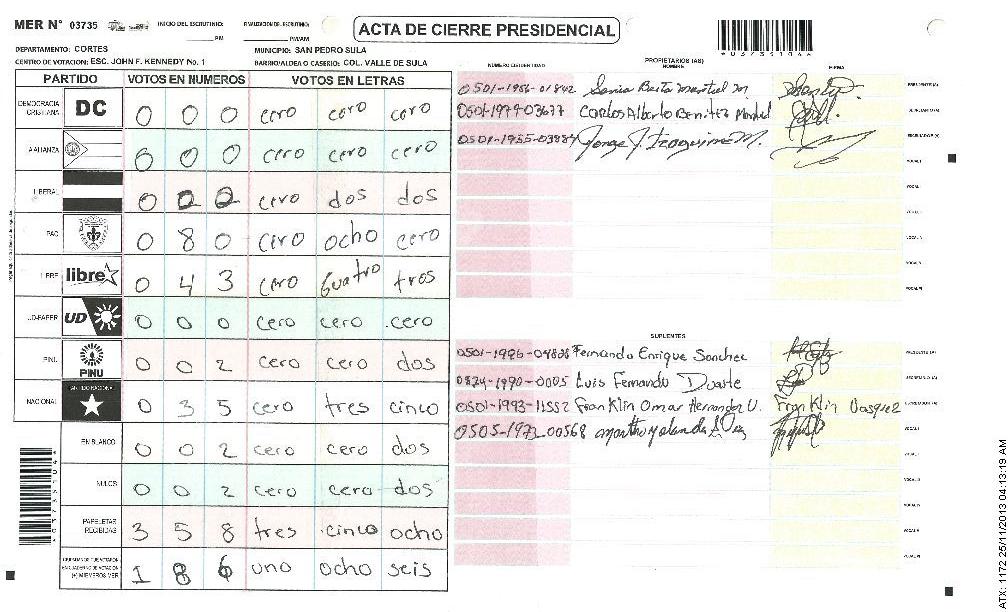 MER N° 03735 INICIO DEL ESCRUTINIO: ____ PM FINALIZACION DEL ESCRUTINIO: ____ PM/AM
ACTA DE CIERRE PRESIDENCIAL
DEPARTAMENTO: CORTES MUNICIPIO: SAN PEDRO SULA
CENTRO DE VOTACION: ESC. JOHN F. KENNEDY No. 1 BARRIO/ALDEA O CASERIO: COL. VALLE DE SULA
PARTIDO VOTOS EN NUMEROS VOTOS EN LETRAS
DEMOCRACIA CRISTIANA DC 0 0 0 cero cero cero
ALIANZA 0 0 0 cero cero cero
LIBERAL 0 2 2 cero dos dos
PAC 0 8 0 cero ocho cero
LIBRE libre 0 4 3 cero cuatro tres
UD-FAPER UD 0 0 0 cero cero cero
PINU PINU 0 0 2 cero cero dos
NACIONAL PARTIDO NACIONAL 0 3 5 cero tres cinco
EN BLANCO 0 0 2 cero cero dos
NULOS 0 0 2 cero cero dos
PAPELETAS RECIBIDAS 3 5 8 tres cinco ocho
(+) MIEMBROS MER 1 8 6 uno ocho seis
NUMERO DE IDENTIDAD PROPIETARIOS (AS) NOMBRE FIRMA
0501-1956-01842 Sonia Berta Montiel M PRESIDENTE (A)
0501-1977-03677 Carlos Alberto Benitez Montiel SECRETARIO (A)
0501-1955-03987 Jorge J. Izaguirre M. ESCRUTADOR (A)
VOCAL I
VOCAL
VOCAL
VOCAL
VOCAL V
VOCAL VI
SUPLENTES
0501-1996-04808 Fernando Enrique Sanchez PRESIDENTE (A)
0824-1990-0005 Luis Fernando Duarte SECRETARIO (A)
0501-1993-11552 Franklin Omar Hernandez V. Franklin Vasquez ESCRUTADOR (A)
0505-1973-00568 VOCAL I
VOCAL
VOCAL
VOCAL
VOCAL V
VOCAL VI
ATX: 1172 25/11/2013 04:13:19 AM